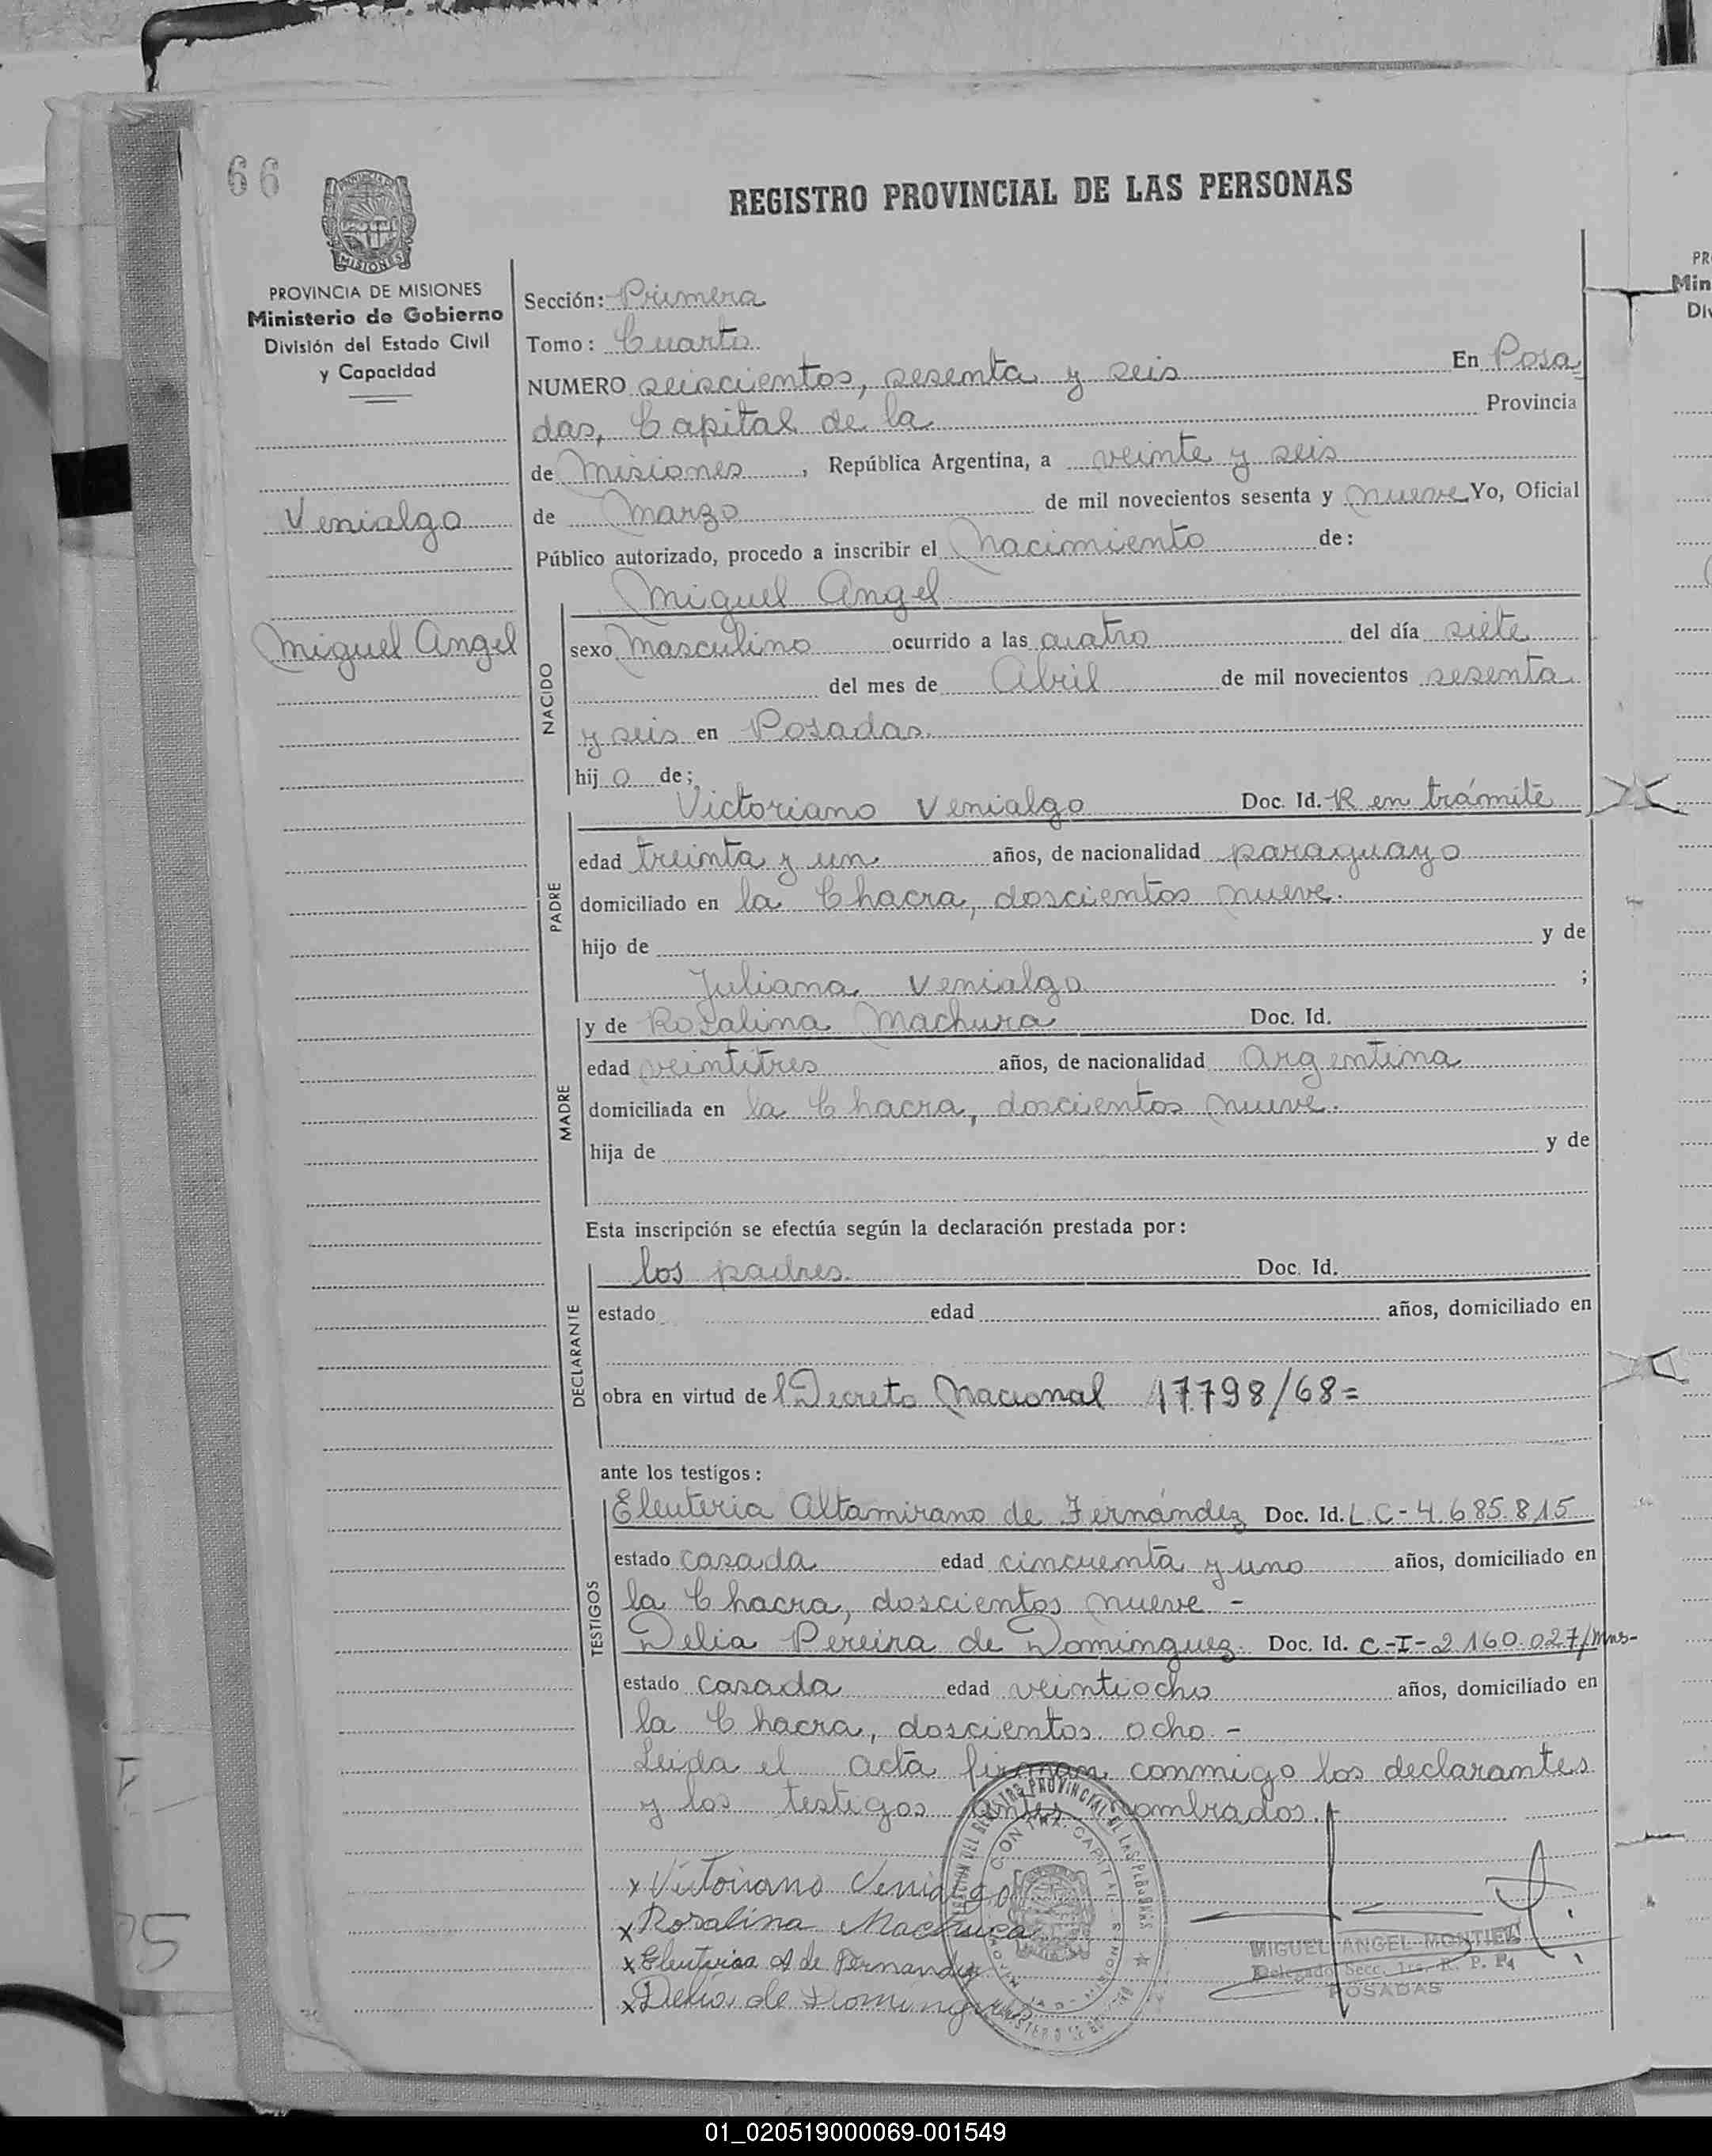 66
REGISTRO PROVINCIAL DE LAS PERSONAS
MISIONES
PROVINCIA DE MISIONES
Ministerio de Gobierno
División del Estado Civil
y Capacidad
Venialgo
Miguel Angel
Sección: Primera
Tomo: Cuarto
NUMERO seiscientos, sesenta y seis En Posa
das, Capital de la Provincia
de Misiones, República Argentina, a veinte y seis
de Marzo de mil novecientos sesenta y nueve Yo, Oficial
Público autorizado, procedo a inscribir el Nacimiento de:
NACIDO
Miguel Angel
sexo Masculino ocurrido a las cuatro del día siete
del mes de Abril de mil novecientos sesenta
y seis en Posadas.
hijo de;
PADRE
Victoriano Venialgo Doc. Id. R en trámite
edad treinta y un años, de nacionalidad paraguayo
domiciliado en la Chacra, doscientos nueve.
hijo de y de
Juliana Venialgo ;
MADRE
y de Rosalina Machura Doc. Id.
edad veintitres años, de nacionalidad Argentina
domiciliada en la Chacra, doscientos nueve.
hija de y de
Esta inscripción se efectúa según la declaración prestada por:
DECLARANTE
los padres. Doc. Id.
estado edad años, domiciliado en
obra en virtud del Decreto Nacional 17798/68=
ante los testigos:
TESTIGOS
Eleuteria Altamirano de Fernández Doc. Id. L.C-4.685.815
estado casada edad cincuenta y uno años, domiciliado en
la Chacra, doscientos nueve -
Delia Pereira de Dominguez. Doc. Id. C-I-2.160.027/Mns-
estado casada edad veintiocho años, domiciliado en
la Chacra, doscientos ocho -
Leida el acta firman conmigo los declarantes
y los testigos antes nombrados.
x Victoriano Venialgo
x Rosalina Machuca
x Eleuteria A de Fernandez
x Delia de Dominguez
MIGUEL ANGEL MONTIEL
Delegado Secc. 1ra. R. P. P.
POSADAS
PR
Min
Div
01_020519000069-001549